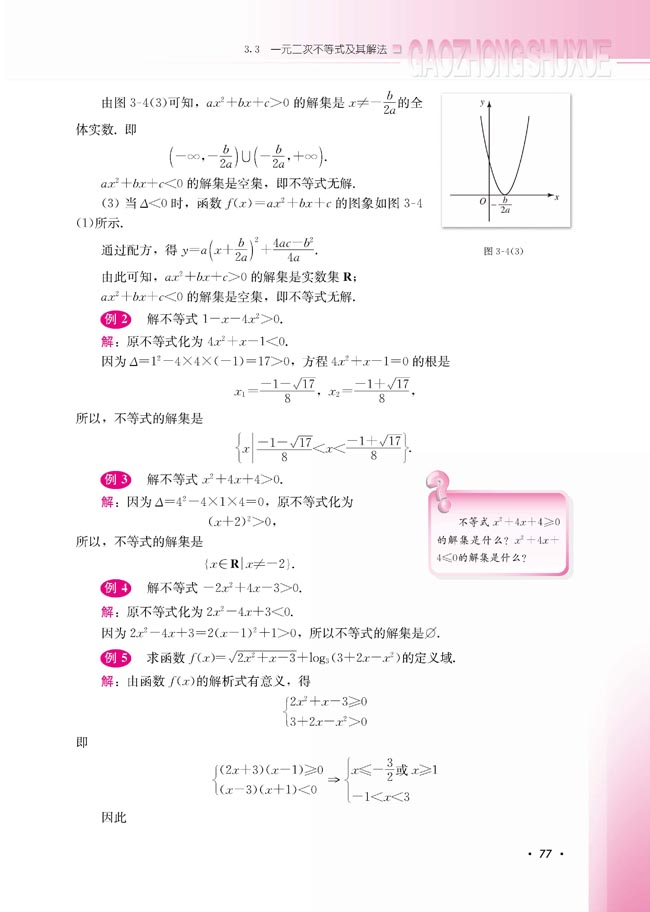 3.3 一元二次不等式及其解法
GAOZHONGSHUXUE
由图 3-4(3)可知，ax²+bx+c>0 的解集是 x≠-b/2a 的全
体实数. 即
(-∞,-b/2a)∪(-b/2a,+∞).
ax²+bx+c<0 的解集是空集，即不等式无解.
(3) 当 Δ<0 时，函数 f(x)=ax²+bx+c 的图象如图 3-4
(1)所示.
通过配方，得 y=a(x+b/2a)²+(4ac-b²)/4a.
由此可知，ax²+bx+c>0 的解集是实数集 R；
ax²+bx+c<0 的解集是空集，即不等式无解.
y
O
-b/2a
x
图 3-4(3)
例 2 解不等式 1-x-4x²>0.
解：原不等式化为 4x²+x-1<0.
因为 Δ=1²-4×4×(-1)=17>0，方程 4x²+x-1=0 的根是
x₁=(-1-√17)/8，x₂=(-1+√17)/8，
所以，不等式的解集是
{x|(-1-√17)/8<x<(-1+√17)/8}.
例 3 解不等式 x²+4x+4>0.
解：因为 Δ=4²-4×1×4=0，原不等式化为
(x+2)²>0，
所以，不等式的解集是
{x∈R|x≠-2}.
?
不等式 x²+4x+4≥0
的解集是什么？x²+4x+
4≤0的解集是什么？
例 4 解不等式 -2x²+4x-3>0.
解：原不等式化为 2x²-4x+3<0.
因为 2x²-4x+3=2(x-1)²+1>0，所以不等式的解集是∅.
例 5 求函数 f(x)=√(2x²+x-3)+log₃(3+2x-x²)的定义域.
解：由函数 f(x)的解析式有意义，得
{2x²+x-3≥0
3+2x-x²>0
即
{(2x+3)(x-1)≥0 ⇒ {x≤-3/2或 x≥1
(x-3)(x+1)<0 -1<x<3
因此
· 77 ·